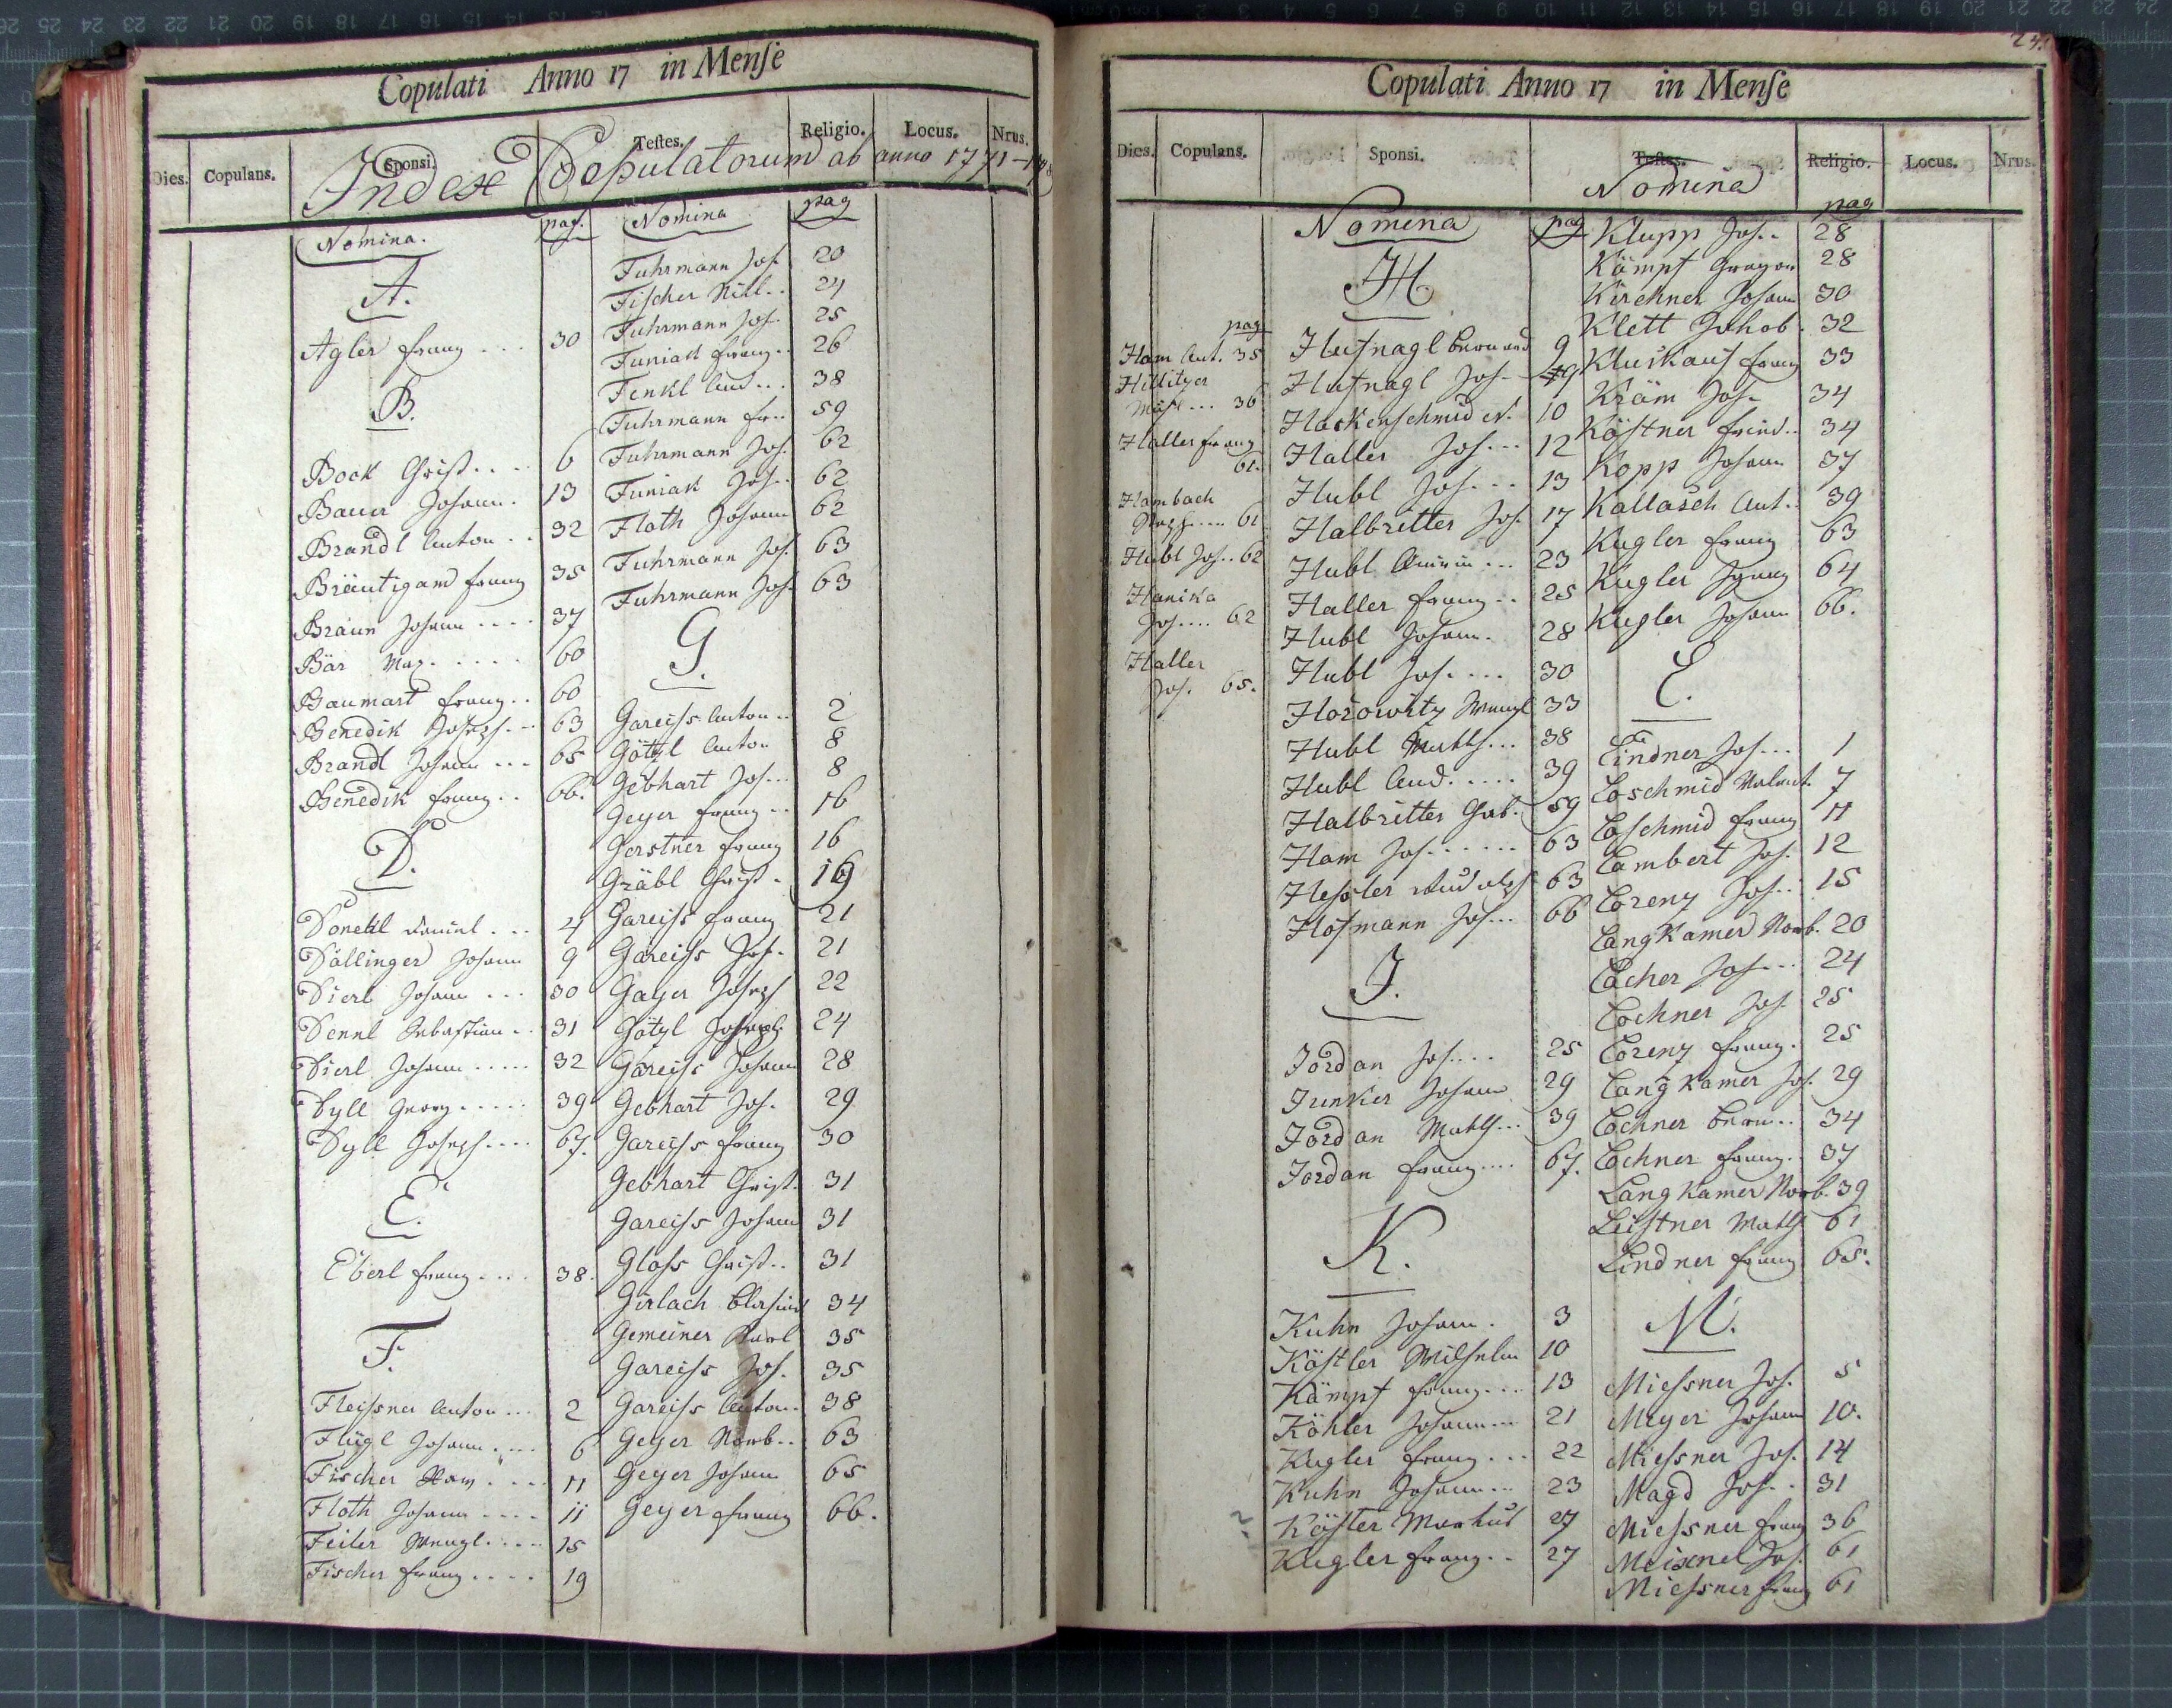 Copulati Anno 17 in Menſe
Dies. Copulans. Sponsi. Teſtes. Religio. Locus. Nrus.
Index Copulatorum ab anno 1771-
Nomina. pag.
A.
Agler Franz ... 30
B.
Bock Christ.... 6
Bauer Johann. 13
Brandl Anton .. 32
Bräutigam Franz 35
Braun Johann .... 37
Bär Max. .... 60
Baumart Franz .. 60
Benedik Joseph.. 63
Brandl Johann ... 65
Benedik Franz .. 66.
D.
Donekl Daniel ... 4
Döllinger Johann 9
Dierl Johann ... 30
Dennl Sebastian .. 31
Dierl Johann ..... 32
Dyll Georg ..... 39
Dyll Joseph.... 67.
E.
Eberl Franz .... 38.
F.
Fleiſsner Anton ... 2
Flügl Johann .... 6
Fischer .... 11
Floth Johann .... 11
Feiler Wenzl .... 15
Fischer Franz .... 19
Nomina pag
Fuhrmann Jos. 20
Fischer Nikl.. 24
Fuhrmann Jos. 25
Funiak Franz.. 26
Fenkl And... 38
Fuhrmann Fr.. 59
Fuhrmann Jos. 62
Funiak Jos.. 62
Floth Johann 62
Fuhrmann Jos. 63
Fuhrmann Jos. 63
G.
Gareiſs Anton .. 2
Götzl Anton 8
Gebhart Jos... 8
Geyer Franz .. 16
Gerstner Franz 16
Gräbl Christ. 19
Gareiſs Franz 21
Gareiſs Jos. 21
Gayer Joseph 22
Götzl Joseph. 24
Gareiſs Johann 28
Gebhart Jos. 29
Gareiſs Franz 30
Gebhart Christ. 31
Gareiſs Johann 31
Gloſs Christ.. 31
Girlach 34
Gemeiner Karl 35
Gareiſs Jos. 35
Gareiſs Anton. 38
Geyer Norb.. 63
Geyer Johann 65
Geyer Franz 66.
Copulati Anno 17 in Menſe
Dies. Copulans. Sponsi. Teſtes. Religio. Locus. Nrus.
pag
Ham Ant. 35
Hillitzer
... 36
Haller Franz
61.
Hambach
Joseph.... 61
Hubl Jos.. 62
Hanika
Jos.... 62
Haller
Jos. 65.
Nomina pag
H.
Hufnagl Bernard 9
Hufnagl Jos. 9
Hackenschmid 10
Haller Jos... 12
Hubl Jos... 13
Halbritter Jos. 17
Hubl ... 23
Haller Franz .. 25
Hubl Johann. 28
Hubl Jos.... 30
Horowitz Wenzl 33
Hubl Math... 38
Hubl And..... 39
Halbritter Gab. 59
Ham Jos...... 63
Heſsler Rudolph 63
Hofmann Jos... 66
I.
Jordan Jos.... 25
Junker Johann 29
Jordan Math... 39
Jordan Franz .... 67.
K.
Kuhn Johann . 3
Köſtler Wilhelm 10
Kämpf Franz... 13
Köhler Johann... 21
Kugler Franz... 22
Kuhn Johann... 23
Köſter Markus 27
Kugler Franz.. 27
Nomina pag
Klupp Jos.. 28
Kämpf Gregor 28
Kirchner Johann 30
Klett Jakob. 32
Kluskauf Franz 33
Kräm Jos. 34
Köſtner Fried.. 34
Kopp Johann 37
Kallasch Ant.. 39
Kugler Franz 63
Kugler Ignaz 64
Kugler Johann 66.
L.
Lindner Jos... 1
Loschmid Valent. 7
Loschmid Franz 11
Lambert Jos. 12
Lorenz Jos... 15
Langkamer Norb. 20
Locher Jos... 24
Lochner Jos. 25
Lorenz Franz. 25
Langkamer Jos. 29
Lochner Bern.. 34
Lochner Franz.. 37
Langkamer Norb. 39
Leistner Math 61
Lindner Franz 65.
M.
Mieſsner Jos. 5
Meyer Johann 10.
Mieſsner Jos. 14
Magd Jos.. 31
Mieſsner Franz 36
Meixnel Jos. 61
Mieſsner Franz 61